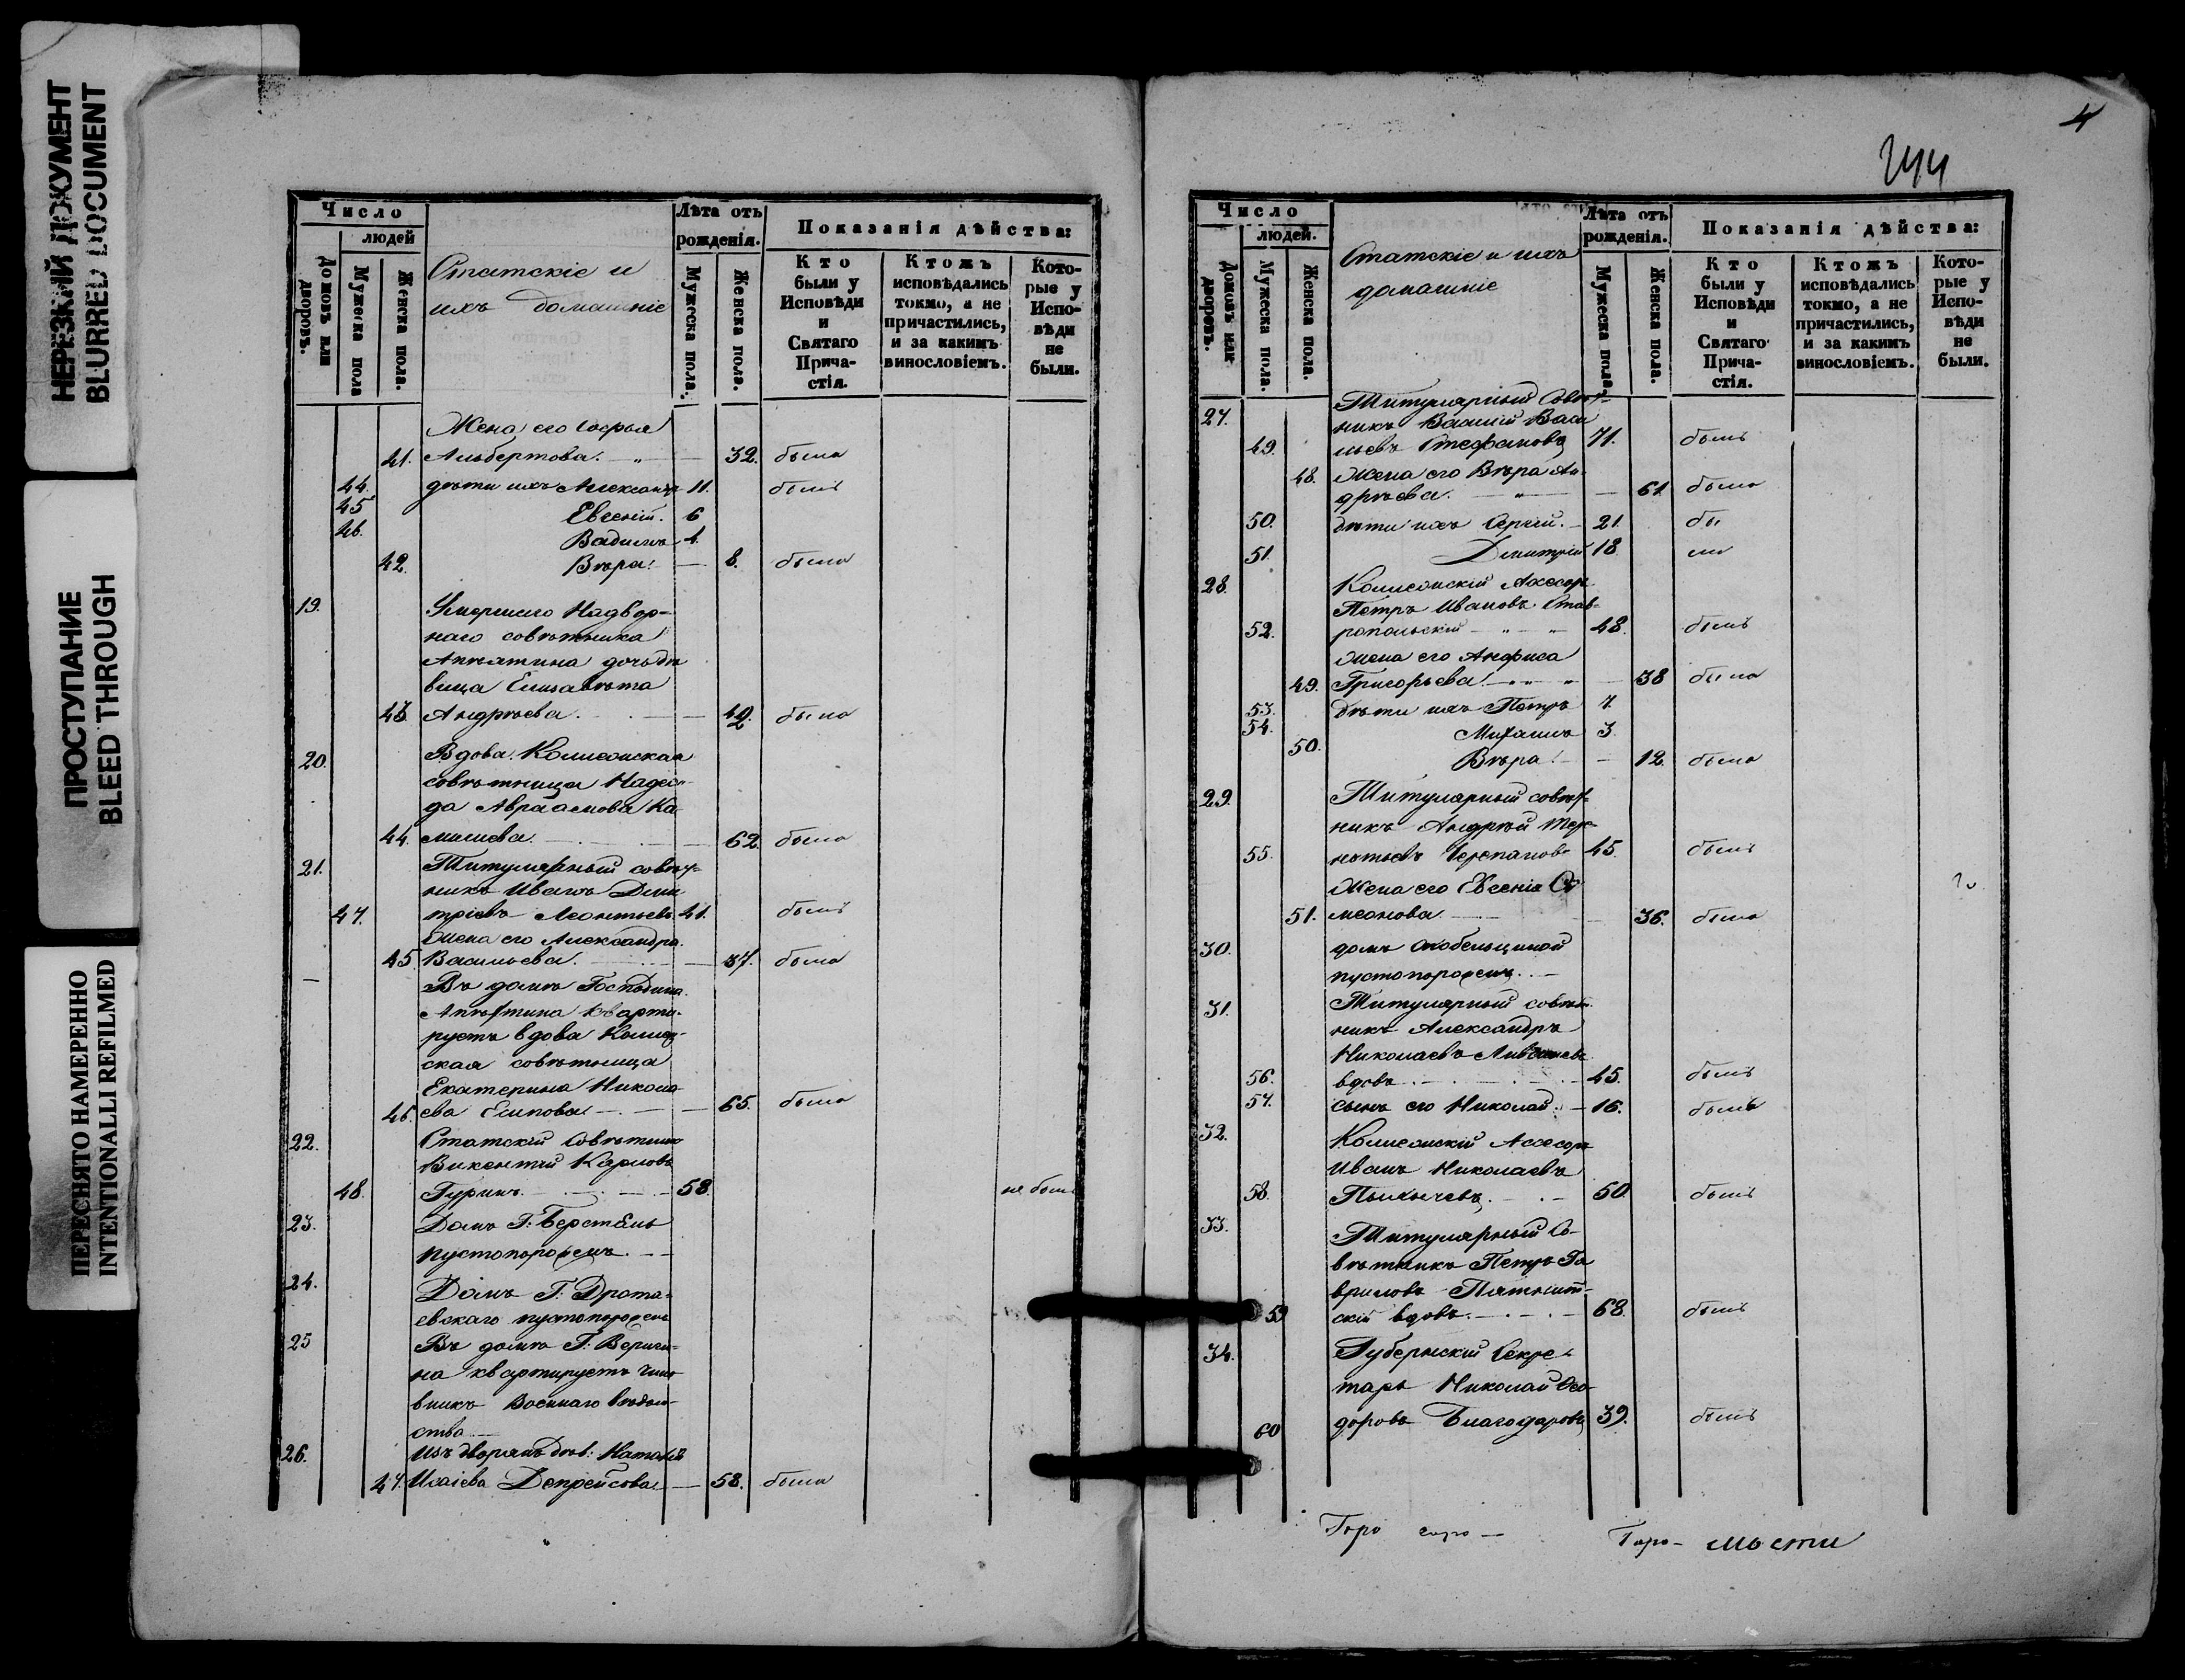 НЕРЕЗКИЙ ДОКУМЕНТ
BLURRED DOCUMENT
ПРОСТУПАНИЕ
BLEED THROUGH
ПЕРЕСНЯТО НАМЕРЕННО
INTENTIONALLI REFILMED
Число
людей
Домовъ или дворовъ.
Мужеска пола
Женска пола.
Статскіе и
ихъ домашніе
Лѣта отъ рожденія.
Мужеска пола.
Женска пола.
Показанія дѣйства:
Кто были у Исповѣди и Святаго Причастія.
Ктожъ исповѣдались токмо, а не причастились, и за какимъ винословіемъ.
Которые у Исповѣди не были.
Жена его Софья
41. Альбертова. 32. была
44. дѣти ихъ Александръ 11. былъ
45 Евгеній. 6
46. Вадимъ 4.
42. Вѣра. 8. была
19. Умершаго Надвор-
наго совѣтника
дочь дѣ
вица Елисавета
43. Андрѣева. 42. была
20. Вдова Колежская
совѣтница Надеж-
да Авраамова Ка
44. 62. была
21. Титулярный совѣт-
никъ Иванъ Дми
47. тріевъ Леонтьевъ 41. былъ
Жена его Александра
45. Васильева. 37. была
Въ домѣ Господина
кварти-
руетъ вдова Колеж-
ская совѣтница
Екатерина Никола
46. ева Есипова 65. была
22. Статскій Совѣтникъ
Викентій Карловъ
48. Гуринъ 58. не былъ
23. Домъ Г.
пустопорожень.
24. Домъ Г.
евскаго пустопорожень
25 Въ домѣ Г. Вериги-
на квартируетъ чино
вникъ Военнаго вѣдом-
ства
26. Изъ дворянъ дѣв. Наталья
47. Исаіева Депрейсова 58. была
4
244
Число
людей.
Домовъ или дворовъ.
Мужеска пола.
Женска пола.
Статскіе и ихъ
домашніе
Лѣта отъ рожденія.
Мужеска пола.
Женска пола.
Показанія дѣйства:
Кто были у Исповѣди и Святаго Причастія.
Ктожъ исповѣдались токмо, а не причастились, и за какимъ винословіемъ.
Которые у Исповѣди не были.
27. Титулярный Совѣт-
никъ Василій Васи
49. льевъ Стефановъ 71. былъ
48. Жена его Вѣра Ан-
дрѣева. 61. была
50. дѣти ихъ Сергій. 21. бы
51. Димитрій 18 ли
28. Колежскій Ассесоръ
Петръ Ивановъ Став-
52. ропольскій 48. былъ
Жена его Анфиса
49. Григорьева. 38 была
53. дѣти ихъ Петръ 7.
54. Михаилъ 3.
50. Вѣра. 12. была
29. Титулярный совѣт-
никъ Андрей Тере-
55. нтьевъ Черепановъ 45. былъ
Жена его Евгенія Си
51. меонова. 36. была
30. домъ
пустопорожень.
31. Титулярный совѣт-
никъ Александръ
Николаевъ
56. вдовъ 45. былъ
57. сынъ его Николай. 16. былъ
32. Колежскій Ассесоръ
Иванъ Николаевъ
58. 50. былъ
33. Титулярный Со-
вѣтникъ Петръ Га
вриловъ Пятниц-
59 скій вдовъ 68. былъ
34. Губернскій Секре-
тарь Николай Ѳео-
60 доровъ Благодаровъ 39. былъ